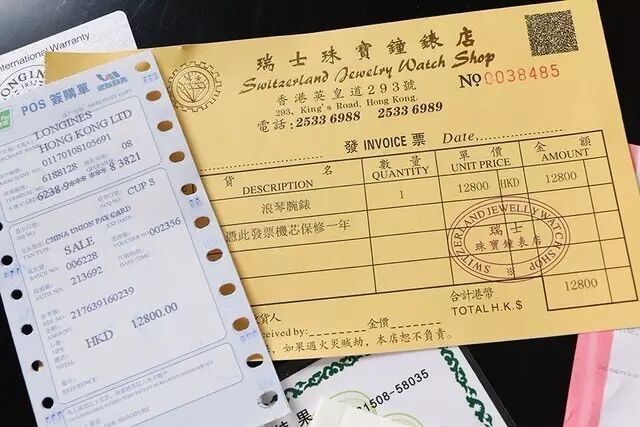 International Warranty
LONGIN
POS 簽購單
LONGINES
HONG KONG LTD
01170108105691
6188128
08
CHINA UNION PAY CARD
CUP S
SALE
BATCH NO.
006228
VOUCHER NO.
002356
AUTH NO.
213692
DATE/TIME
REF NO.
217639160239
AMOUNT
HKD 12800.00
REFERENCE
瑞士珠寶鐘錶店
Switzerland Jewelry Watch Shop
香港英皇道293號
293, King's Road, Hong Kong.
電話:2533 6988 2533 6989
No 0038485
發 INVOICE 票 Date
貨 名 數量 單價 金額
DESCRIPTION QUANTITY UNIT PRICE AMOUNT
浪琴腕錶 1 12800 HKD 12800
憑此發票機芯保修一年
SWITZERLAND JEWELLY WATCH SHOP
瑞士
珠寶鐘錶店
合計港幣
TOTAL H.K.$ 12800
貨人 金價
eceived by:
如果遇火災賊劫,本店恕不負責.
1508-58035